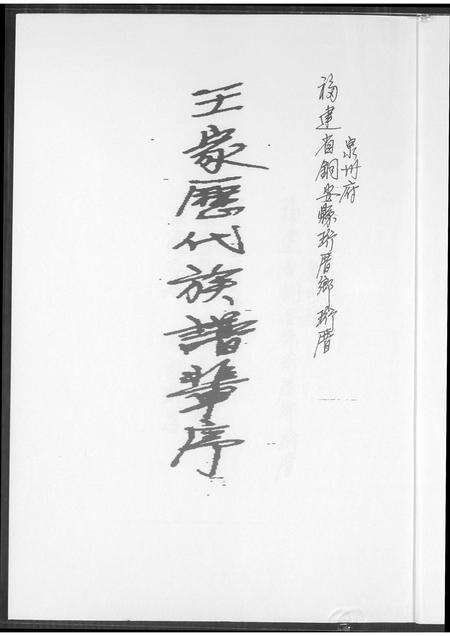 泉州府
福建省銅安縣珩厝鄉珩厝
王家歷代族譜輩序